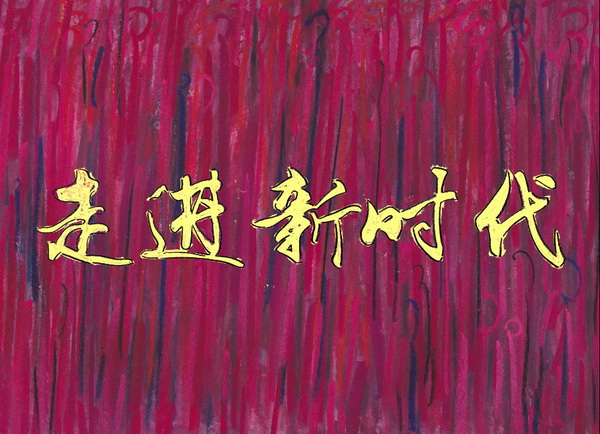 走进新时代